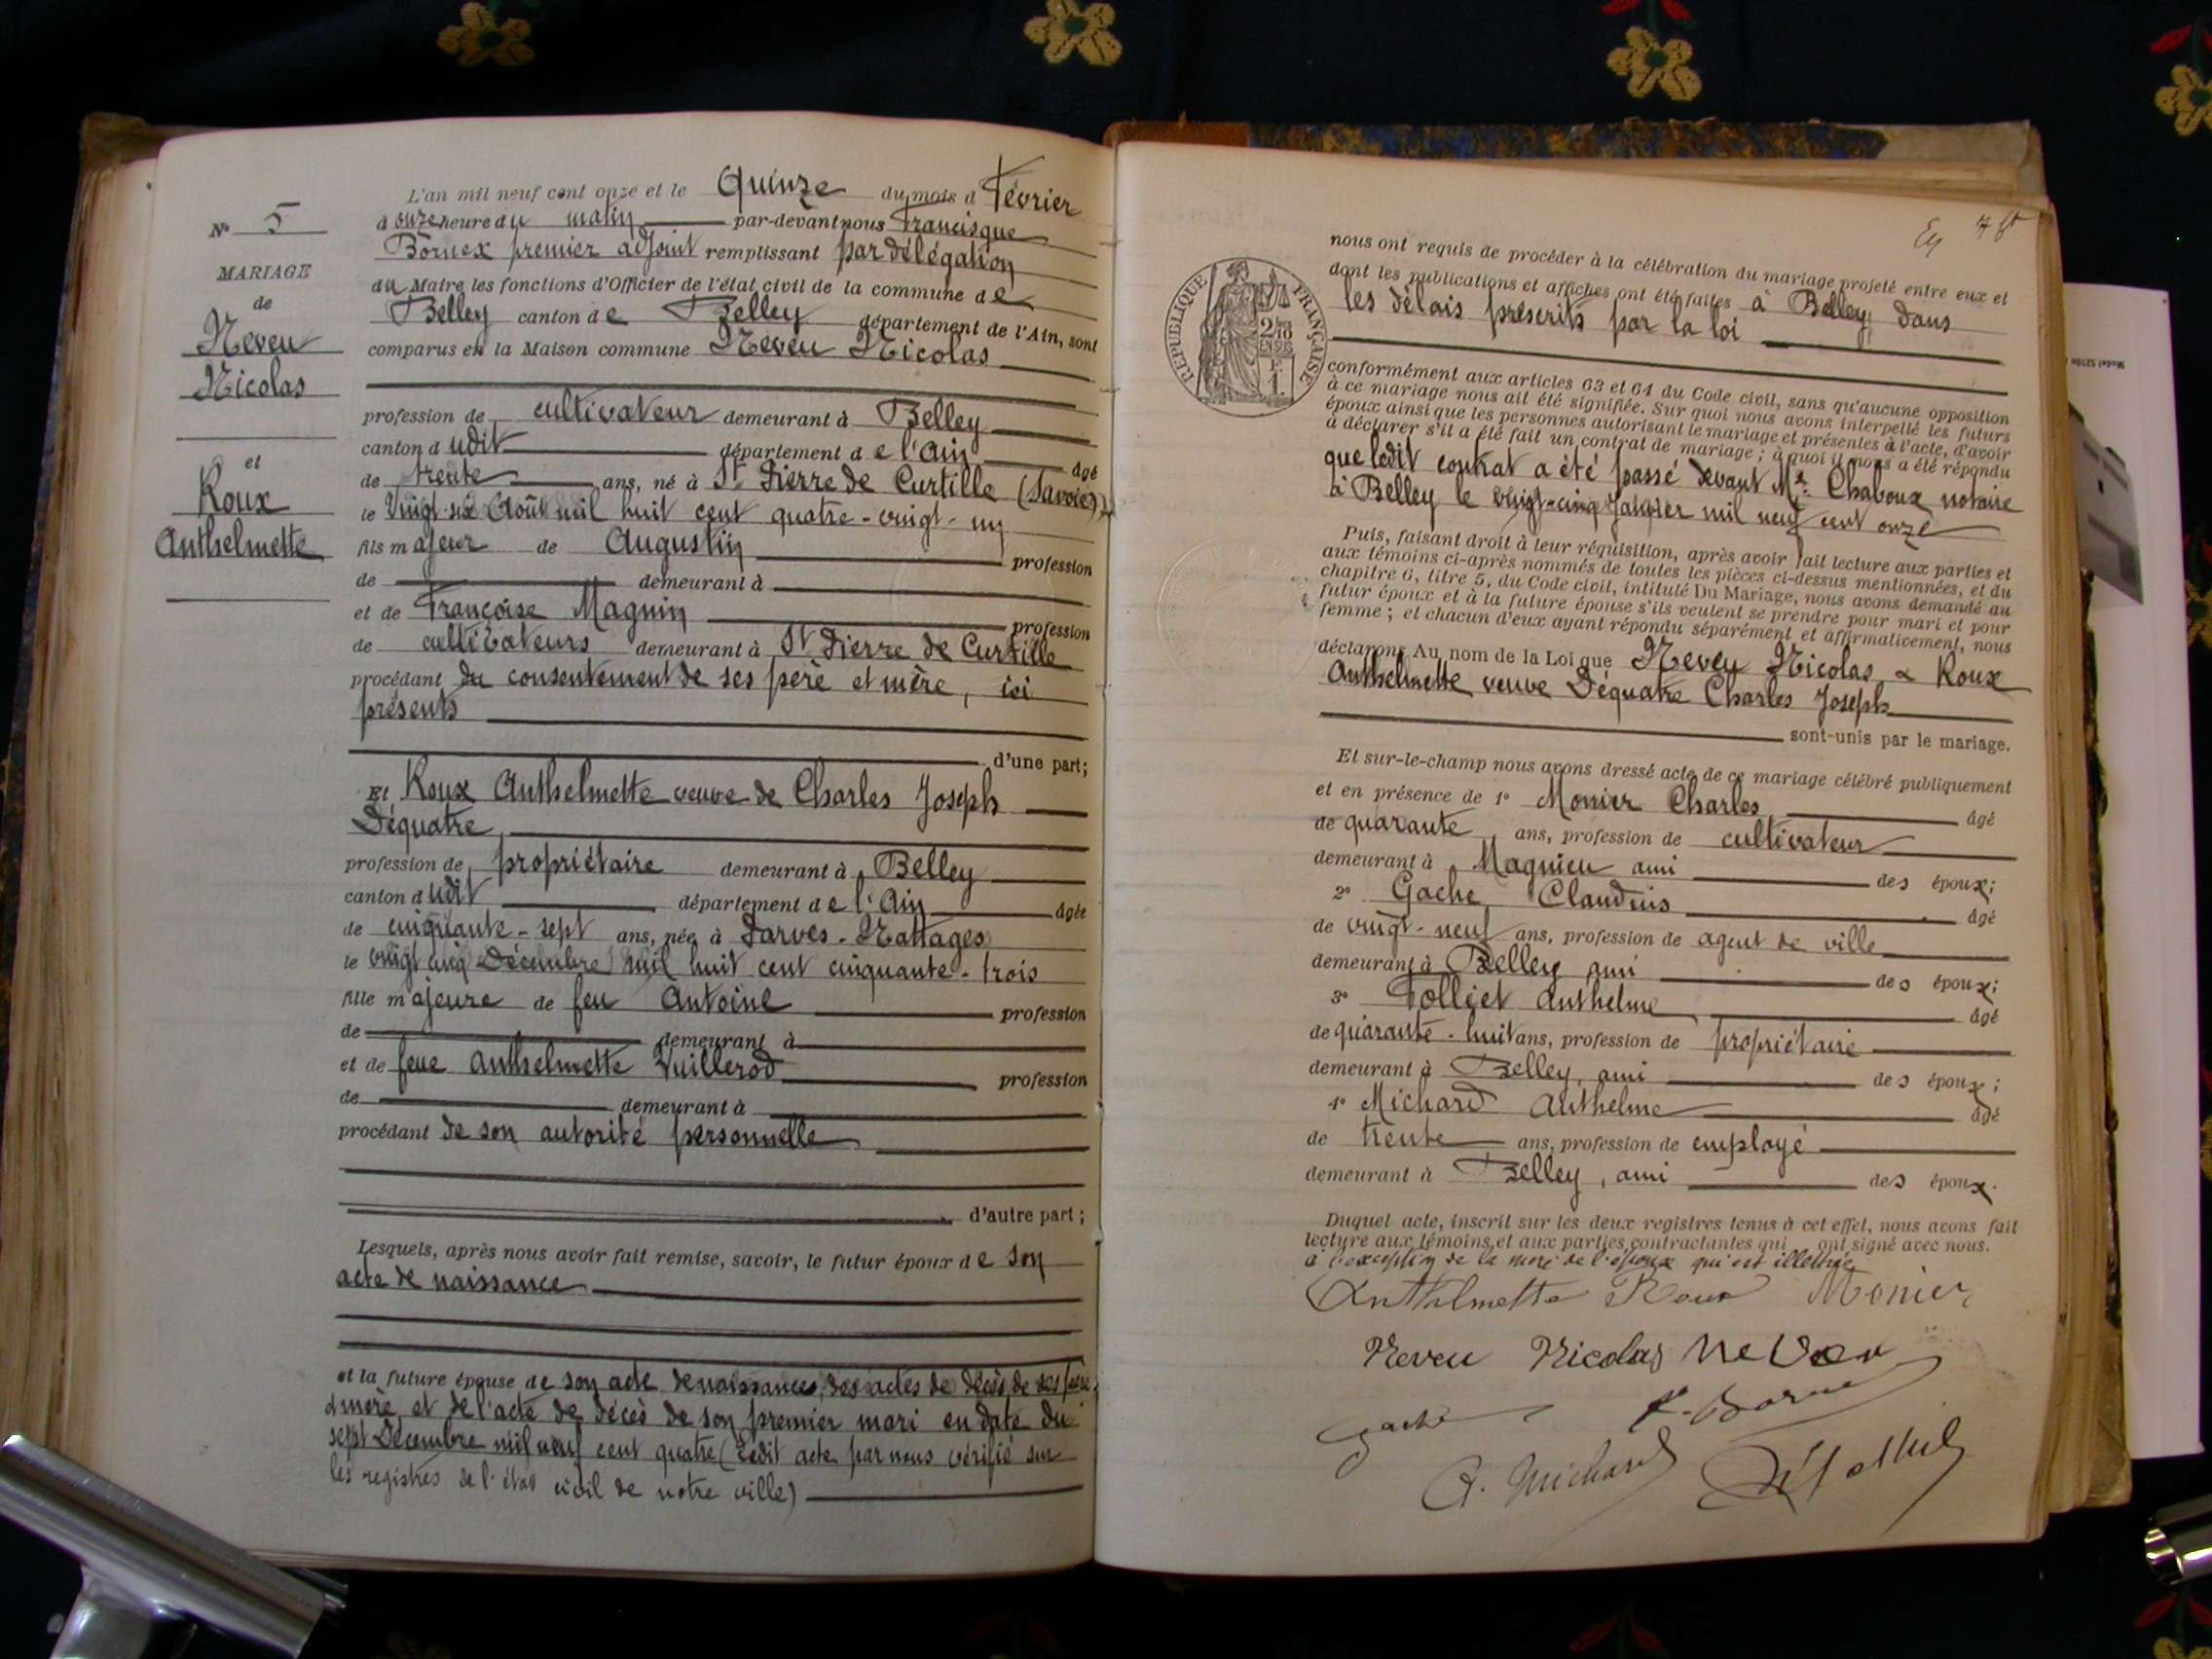 N° 5
MARIAGE
de
Neveu
Nicolas
et
Roux
Anthelmette
L'an mil neuf cent onze et le Quinze du mois d Février
à onze heure du matin par-devant nous Francisque
Bornex premier adjoint remplissant par délégation
du Maire les fonctions d'Officier de l'état civil de la commune de
Belley canton de Belley département de l'Ain, sont
comparus en la Maison commune Neveu Nicolas
profession de cultivateur demeurant à Belley
canton dudit département de l'Ain âgé
de trente ans, né à St Pierre de Curtille (Savoie)
le Vingt-six Août mil huit cent quatre-vingt-un
fils majeur de Augustin profession
de demeurant à
et de Françoise Magnin profession
de cultivateurs demeurant à St Pierre de Curtille
procédant du consentement de ses père et mère, ici
présents
d'une part;
Et Roux Anthelmette veuve de Charles Joseph
Déquatre
profession de propriétaire demeurant à Belley
canton dudit département de l'Ain âgée
de cinquante-sept ans, née à Parves-Nattages
le vingt cinq Décembre mil huit cent cinquante-trois
fille majeure de feu Antoine profession
de demeurant à
et de feue Anthelmette Vuillerod profession
de demeurant à
procédant de son autorité personnelle
d'autre part;
Lesquels, après nous avoir fait remise, savoir, le futur époux de son
acte de naissance
et la future épouse de son acte de naissances, des actes de décès de ses père
et mère, et de l'acte de décès de son premier mari en date du
sept Décembre mil neuf cent quatre (Ledit acte par nous vérifié sur
les registres de l'état civil de notre ville)
RÉPUBLIQUE FRANÇAISE
2/10
EN SUS
F.
1.
nous ont requis de procéder à la célébration du mariage projeté entre eux et
dont les publications et affiches ont été faites à Belley dans
les délais prescrits par la loi
conformément aux articles 63 et 64 du Code civil, sans qu'aucune opposition
à ce mariage nous ait été signifiée. Sur quoi nous avons interpellé les futurs
époux ainsi que les personnes autorisant le mariage et présentes à l'acte, d'avoir
à déclarer s'il a été fait un contrat de mariage; à quoi il nous a été répondu
que ledit contrat a été passé devant Me Chaboux notaire
à Belley le vingt-cinq Janvier mil neuf cent onze
Puis, faisant droit à leur réquisition, après avoir fait lecture aux parties et
aux témoins ci-après nommés de toutes les pièces ci-dessus mentionnées, et du
chapitre 6, titre 5, du Code civil, intitulé Du Mariage, nous avons demandé au
futur époux et à la future épouse s'ils veulent se prendre pour mari et pour
femme; et chacun d'eux ayant répondu séparément et affirmativement, nous
déclarons Au nom de la Loi que Neveu Nicolas & Roux
Anthelmette veuve Déquatre Charles Joseph
sont-unis par le mariage.
Et sur-le-champ nous avons dressé acte de ce mariage célébré publiquement
et en présence de 1° Monier Charles âgé
de quarante ans, profession de cultivateur
demeurant à Magnieu ami des époux;
2° Gache Claudius âgé
de vingt-neuf ans, profession de agent de ville
demeurant à Belley ami des époux;
3° Folliet Anthelme âgé
de quarante-huit ans, profession de propriétaire
demeurant à Belley, ami des époux;
4° Michard Anthelme âgé
de trente ans, profession de employé
demeurant à Belley, ami des époux.
Duquel acte, inscrit sur les deux registres tenus à cet effet, nous avons fait
lecture aux témoins et aux parties contractantes qui ont signé avec nous.
à l'exception de la mère de l'époux qui est illettrée
Anthelmette Roux Monier
Neveu Nicolas Neveu
Gache F. Bornex
A. Michard